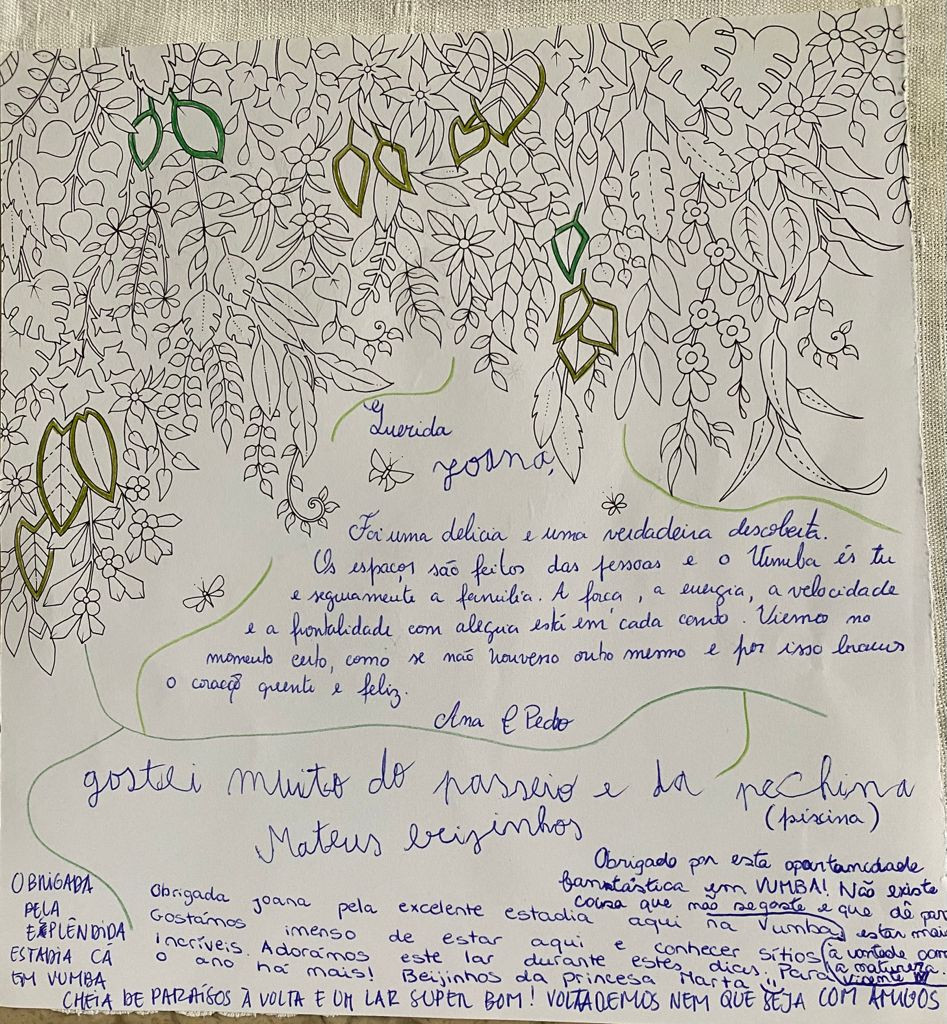 Querida
Joana,
Foi uma delícia e uma verdadeira descoberta.
Os espaços são feitos das pessoas e o Vumba és tu
e seguramente a família. A força, a energia, a velocidade
e a frontalidade com alegria está em cada canto. Viemos no
momento certo, como se não houvesse outro mesmo e por isso
o coração quente e feliz.
Ana E Pedro
gostei muito do passeio e da pechina
(piscina)
Mateus beijinhos
Obrigado por esta oportunidade
fantástica em VUMBA! Não existe
coisa que não se goste e que dê para
estar mais
à vontade com
a natureza.
Vicente
Obrigada Joana pela excelente estadia aqui na Vumba
Gostámos imenso de estar aqui e conhecer sítios
incríveis. Adorámos este lar durante estes dias. Para
o ano há mais! Beijinhos da princesa Marta
OBRIGADA
PELA
ESPLÊNDIDA
ESTADIA CÁ
EM VUMBA
CHEIA DE PARAÍSOS À VOLTA E UM LAR SUPER BOM! VOLTAREMOS NEM QUE SEJA COM AMIGOS